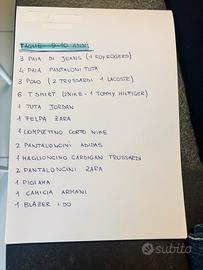 TAGLIE 9-10 ANNI
3 PAIA DI JEANS (1 ROY ROGERS)
4 PAIA PANTALONI TUTA
3 POLO (2 TRUSSARDI 1 LACOSTE)
6 T SHIRT (NIKE - 1 TOMMY HILFIGER)
1 TUTA JORDAN
1 FELPA ZARA
1 COMPLETINO CORTO NIKE
2 PANTALONCINI ADIDAS
1 MAGLIONCINO CARDIGAN TRUSSARDI
2 PANTALONCINI ZARA
1 PIGIAMA
1 CAMICIA ARMANI
1 BLAZER IDO
subito